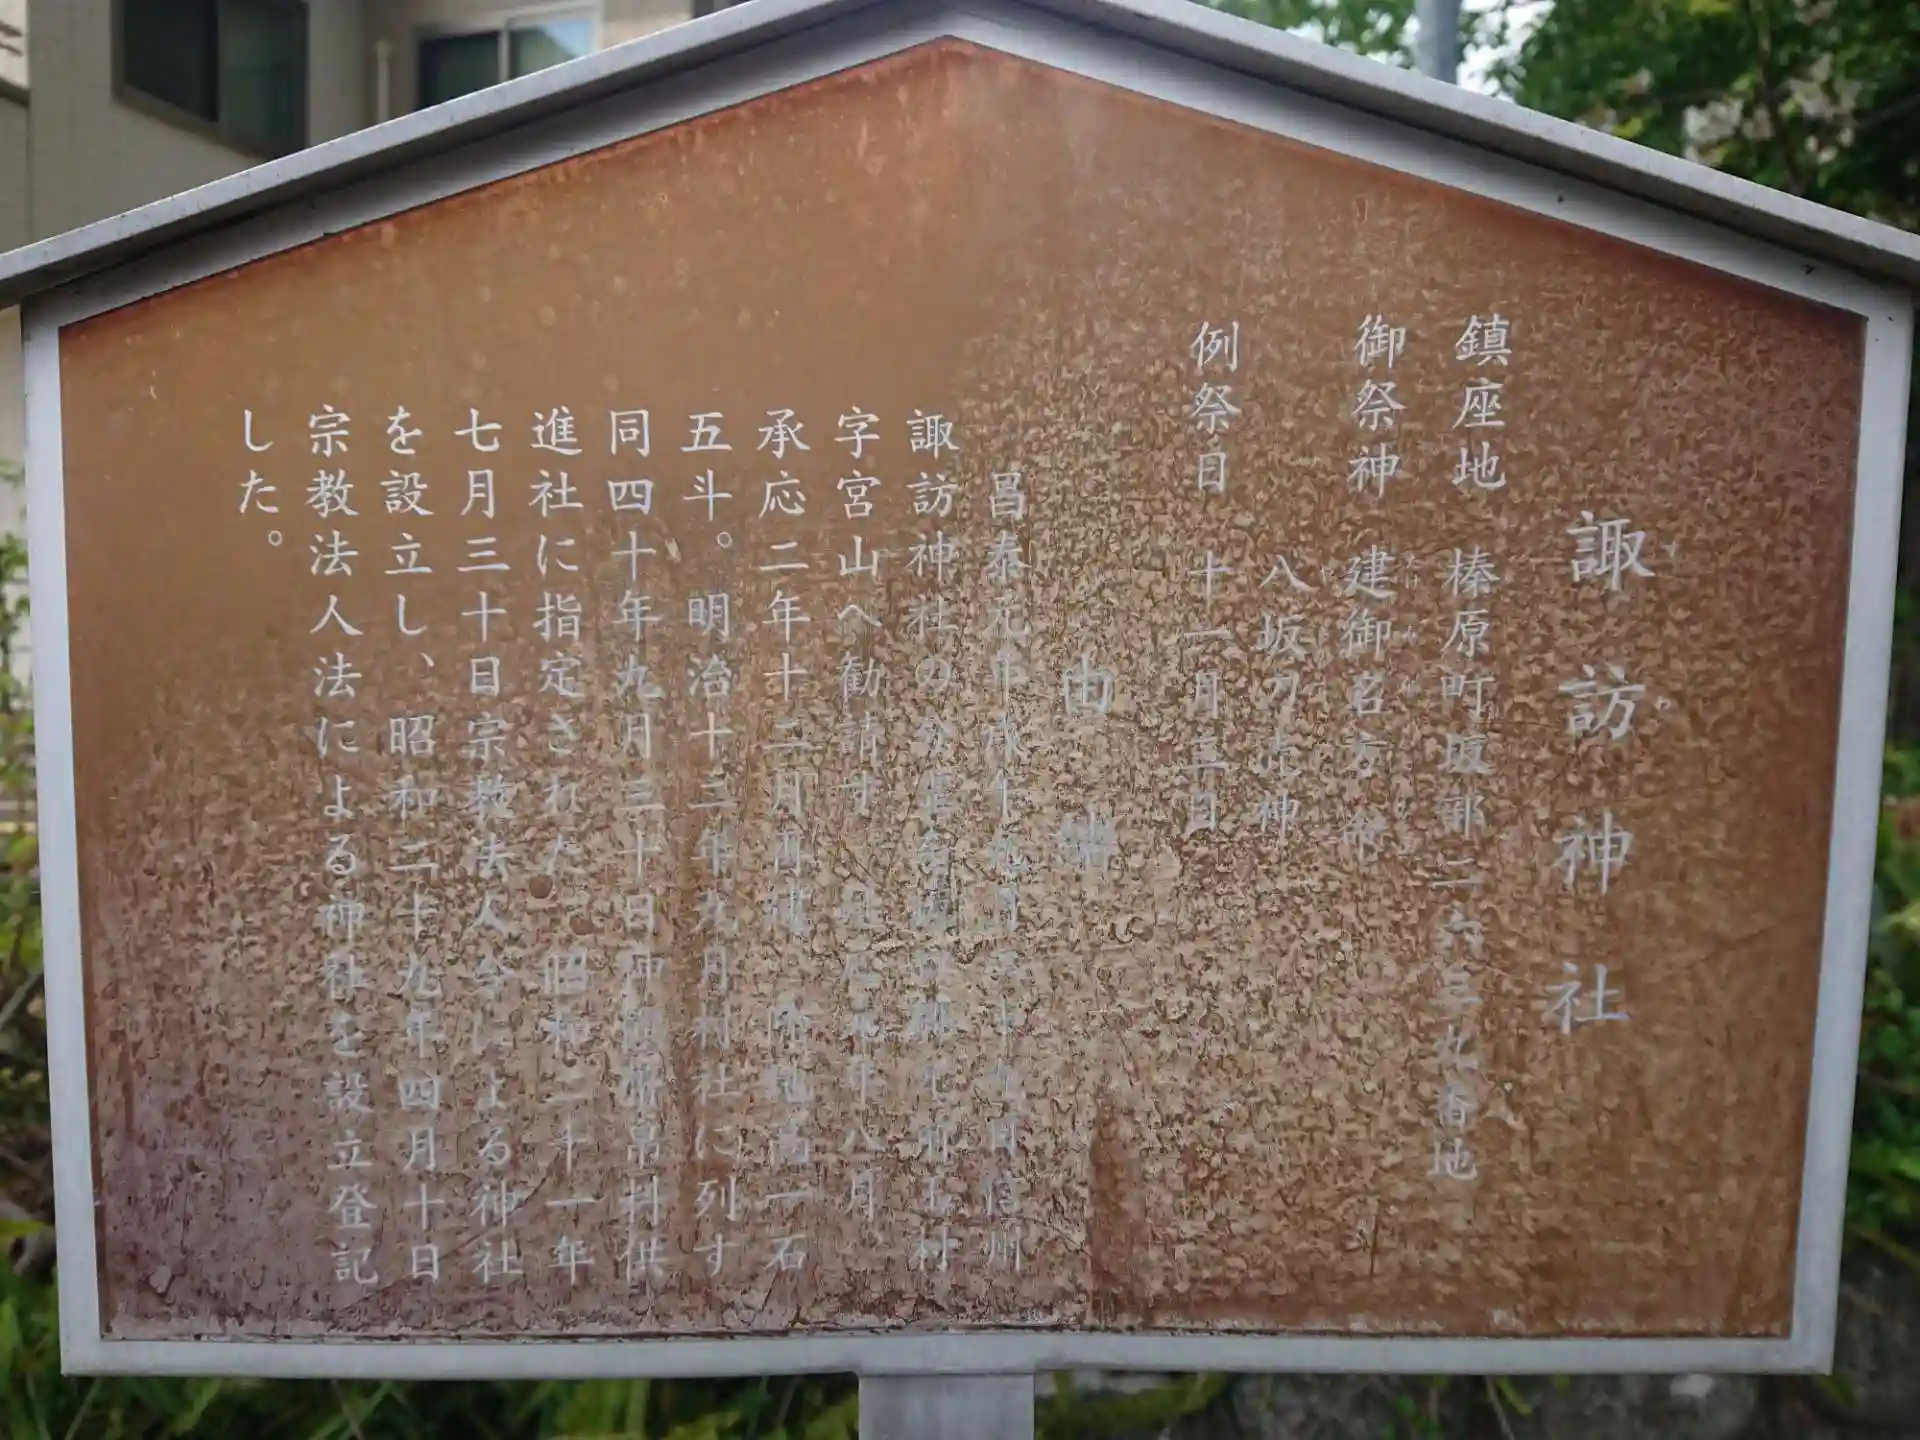 諏訪神社
鎮座地 榛原町坂部二六三九番地
御祭神 建御名方命
八坂刀売神
例祭日 十一月三日
由緒
昌泰元年 信州
諏訪神社の 村
字宮山へ勧請す 八月、
承応二年十二月再建。除地高一石
五斗。明治十三年九月村社に列す
同四十年九月三十日神饌幣帛料供
進社に指定された。昭和二十一年
七月三十日宗教法人令による神社
を設立し、昭和二十九年四月十日
宗教法人法による神社を設立登記
した。